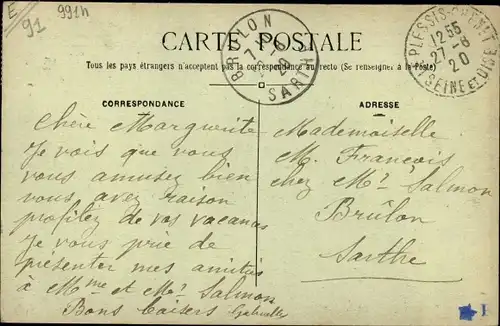 E
91
991h
CARTE POSTALE
Tous les pays étrangers n'acceptent pas la correspondance au recto (Se renseigner à la Poste)
BRULON
SARTHE
20
PLESSIS-CHENET
12 55
27-8
20
SEINE ET OISE
CORRESPONDANCE
Chère Marguerite
Je vois que vous
vous amusez bien
vous avez raison
profitez de vos vacances
Je vous prie de
présenter mes amitiés
à Mme et Mr Salmon
Bons baisers Gabrielle
ADRESSE
Mademoiselle
M. François
chez Mr Salmon
Brûlon
Sarthe